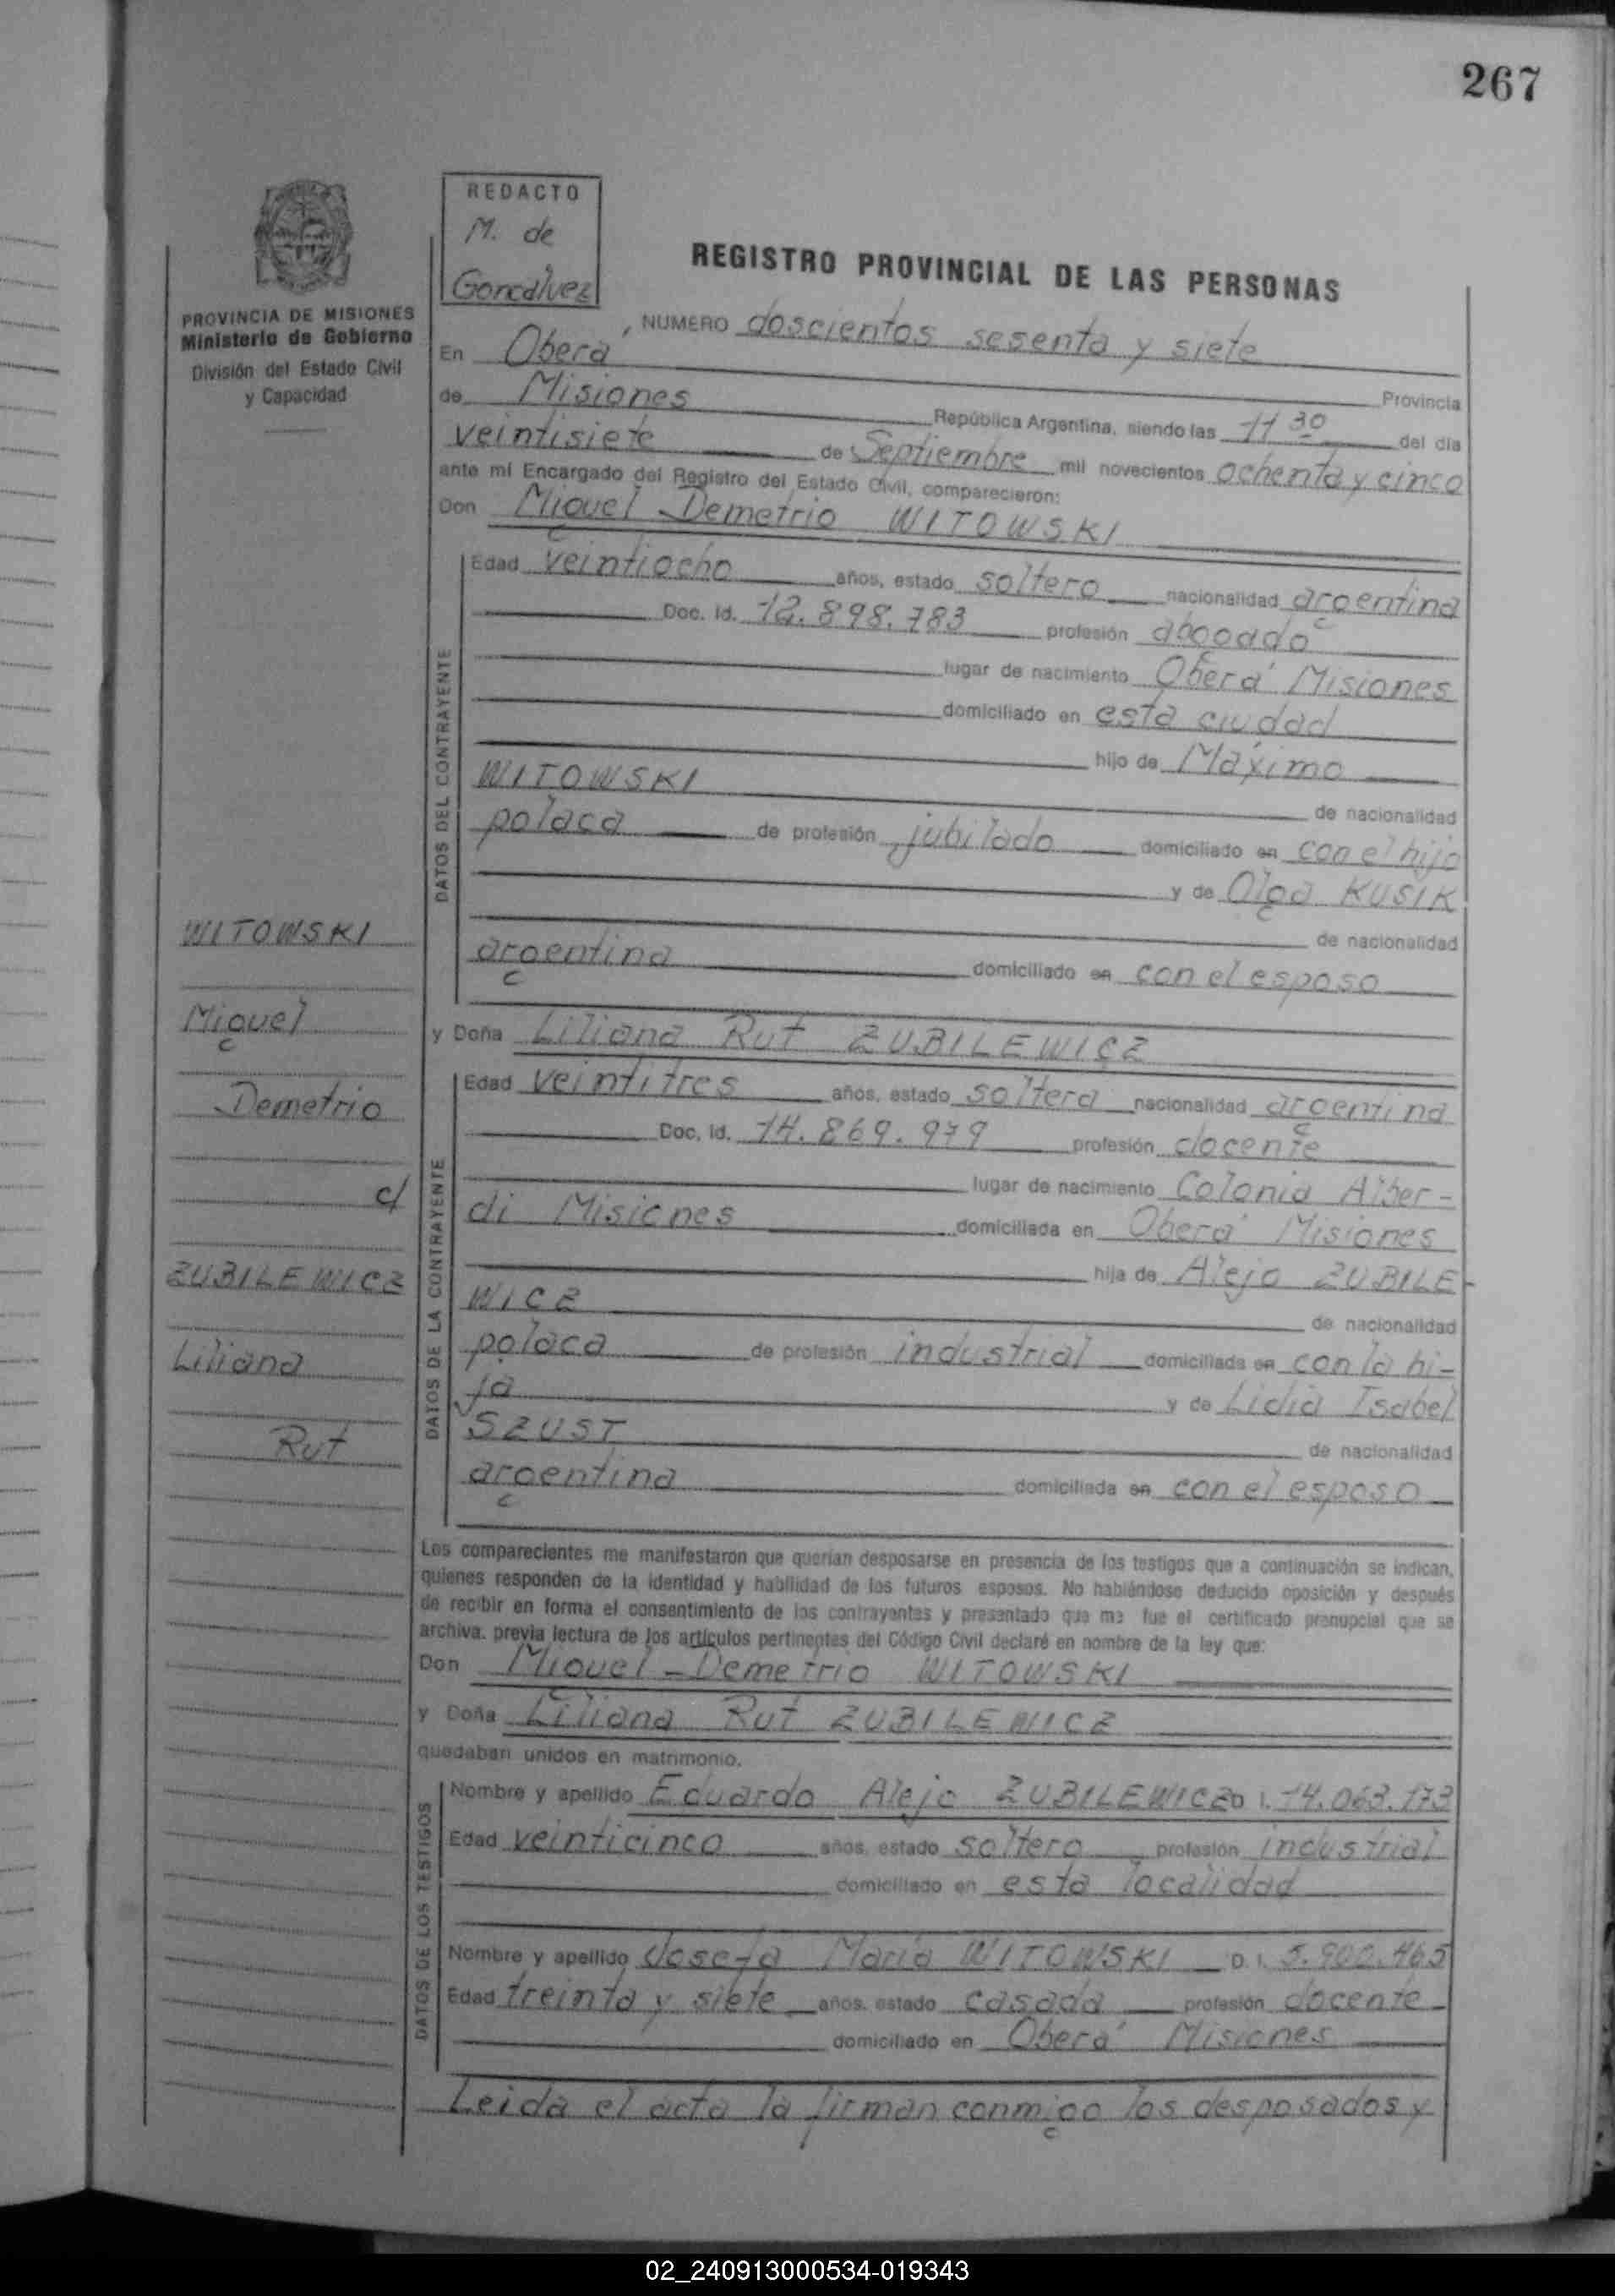 267
REDACTO
M. de
Goncalvez
REGISTRO PROVINCIAL DE LAS PERSONAS
PROVINCIA DE MISIONES
Ministerio de Gobierno
División del Estado Civil
y Capacidad
NUMERO doscientos sesenta y siete
En Oberá Provincia
de Misiones República Argentina, siendo las 11 30 del día
veintisiete de Septiembre mil novecientos ochenta y cinco
ante mí Encargado del Registro del Estado Civil, comparecieron:
Don Miguel Demetrio WITOWSKI
DATOS DEL CONTRAYENTE
Edad veintiocho años, estado soltero nacionalidad argentina
Doc. Id. 12.898.783 profesión abogado
lugar de nacimiento Oberá Misiones
domiciliado en esta ciudad
hijo de Máximo
WITOWSKI de nacionalidad
polaca de profesión jubilado domiciliado en con el hijo
y de Olga KUSIK
de nacionalidad
argentina domiciliado en con el esposo
WITOWSKI
Miguel
Demetrio
c/
ZUBILEWICZ
Liliana
Rut
y Doña Liliana Rut ZUBILEWICZ
DATOS DE LA CONTRAYENTE
Edad veintitres años, estado soltera nacionalidad argentina
Doc. Id. 14.869.979 profesión docente
lugar de nacimiento Colonia Alber-
di Misiones domiciliada en Oberá Misiones
hija de Alejo ZUBILE-
WICZ de nacionalidad
polaca de profesión industrial domiciliada en con la hi-
ja y de Lidia Isabel
SZUST de nacionalidad
argentina domiciliada en con el esposo
Los comparecientes me manifestaron que querían desposarse en presencia de los testigos que a continuación se indican,
quienes responden de la identidad y habilidad de los futuros esposos. No habiéndose deducido oposición y después
de recibir en forma el consentimiento de los contrayentes y presentado que me fue el certificado prenupcial que se
archiva. previa lectura de los artículos pertinentes del Código Civil declaré en nombre de la ley que:
Don Miguel Demetrio WITOWSKI
y Doña Liliana Rut ZUBILEWICZ
quedaban unidos en matrimonio.
DATOS DE LOS TESTIGOS
Nombre y apellido Eduardo Alejo ZUBILEWICZ D I. 14.063.173
Edad veinticinco años, estado soltero profesión industrial
domiciliado en esta localidad
Nombre y apellido Josefa María WITOWSKI D. I. 5.902.465
Edad treinta y siete años, estado casada profesión docente
domiciliado en Oberá Misiones
Leida el acta la firman conmigo los desposados y
02_240913000534-019343